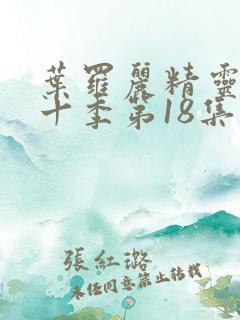 葉羅麗精靈
十季第18集
張紅璐
未经同意禁止转载